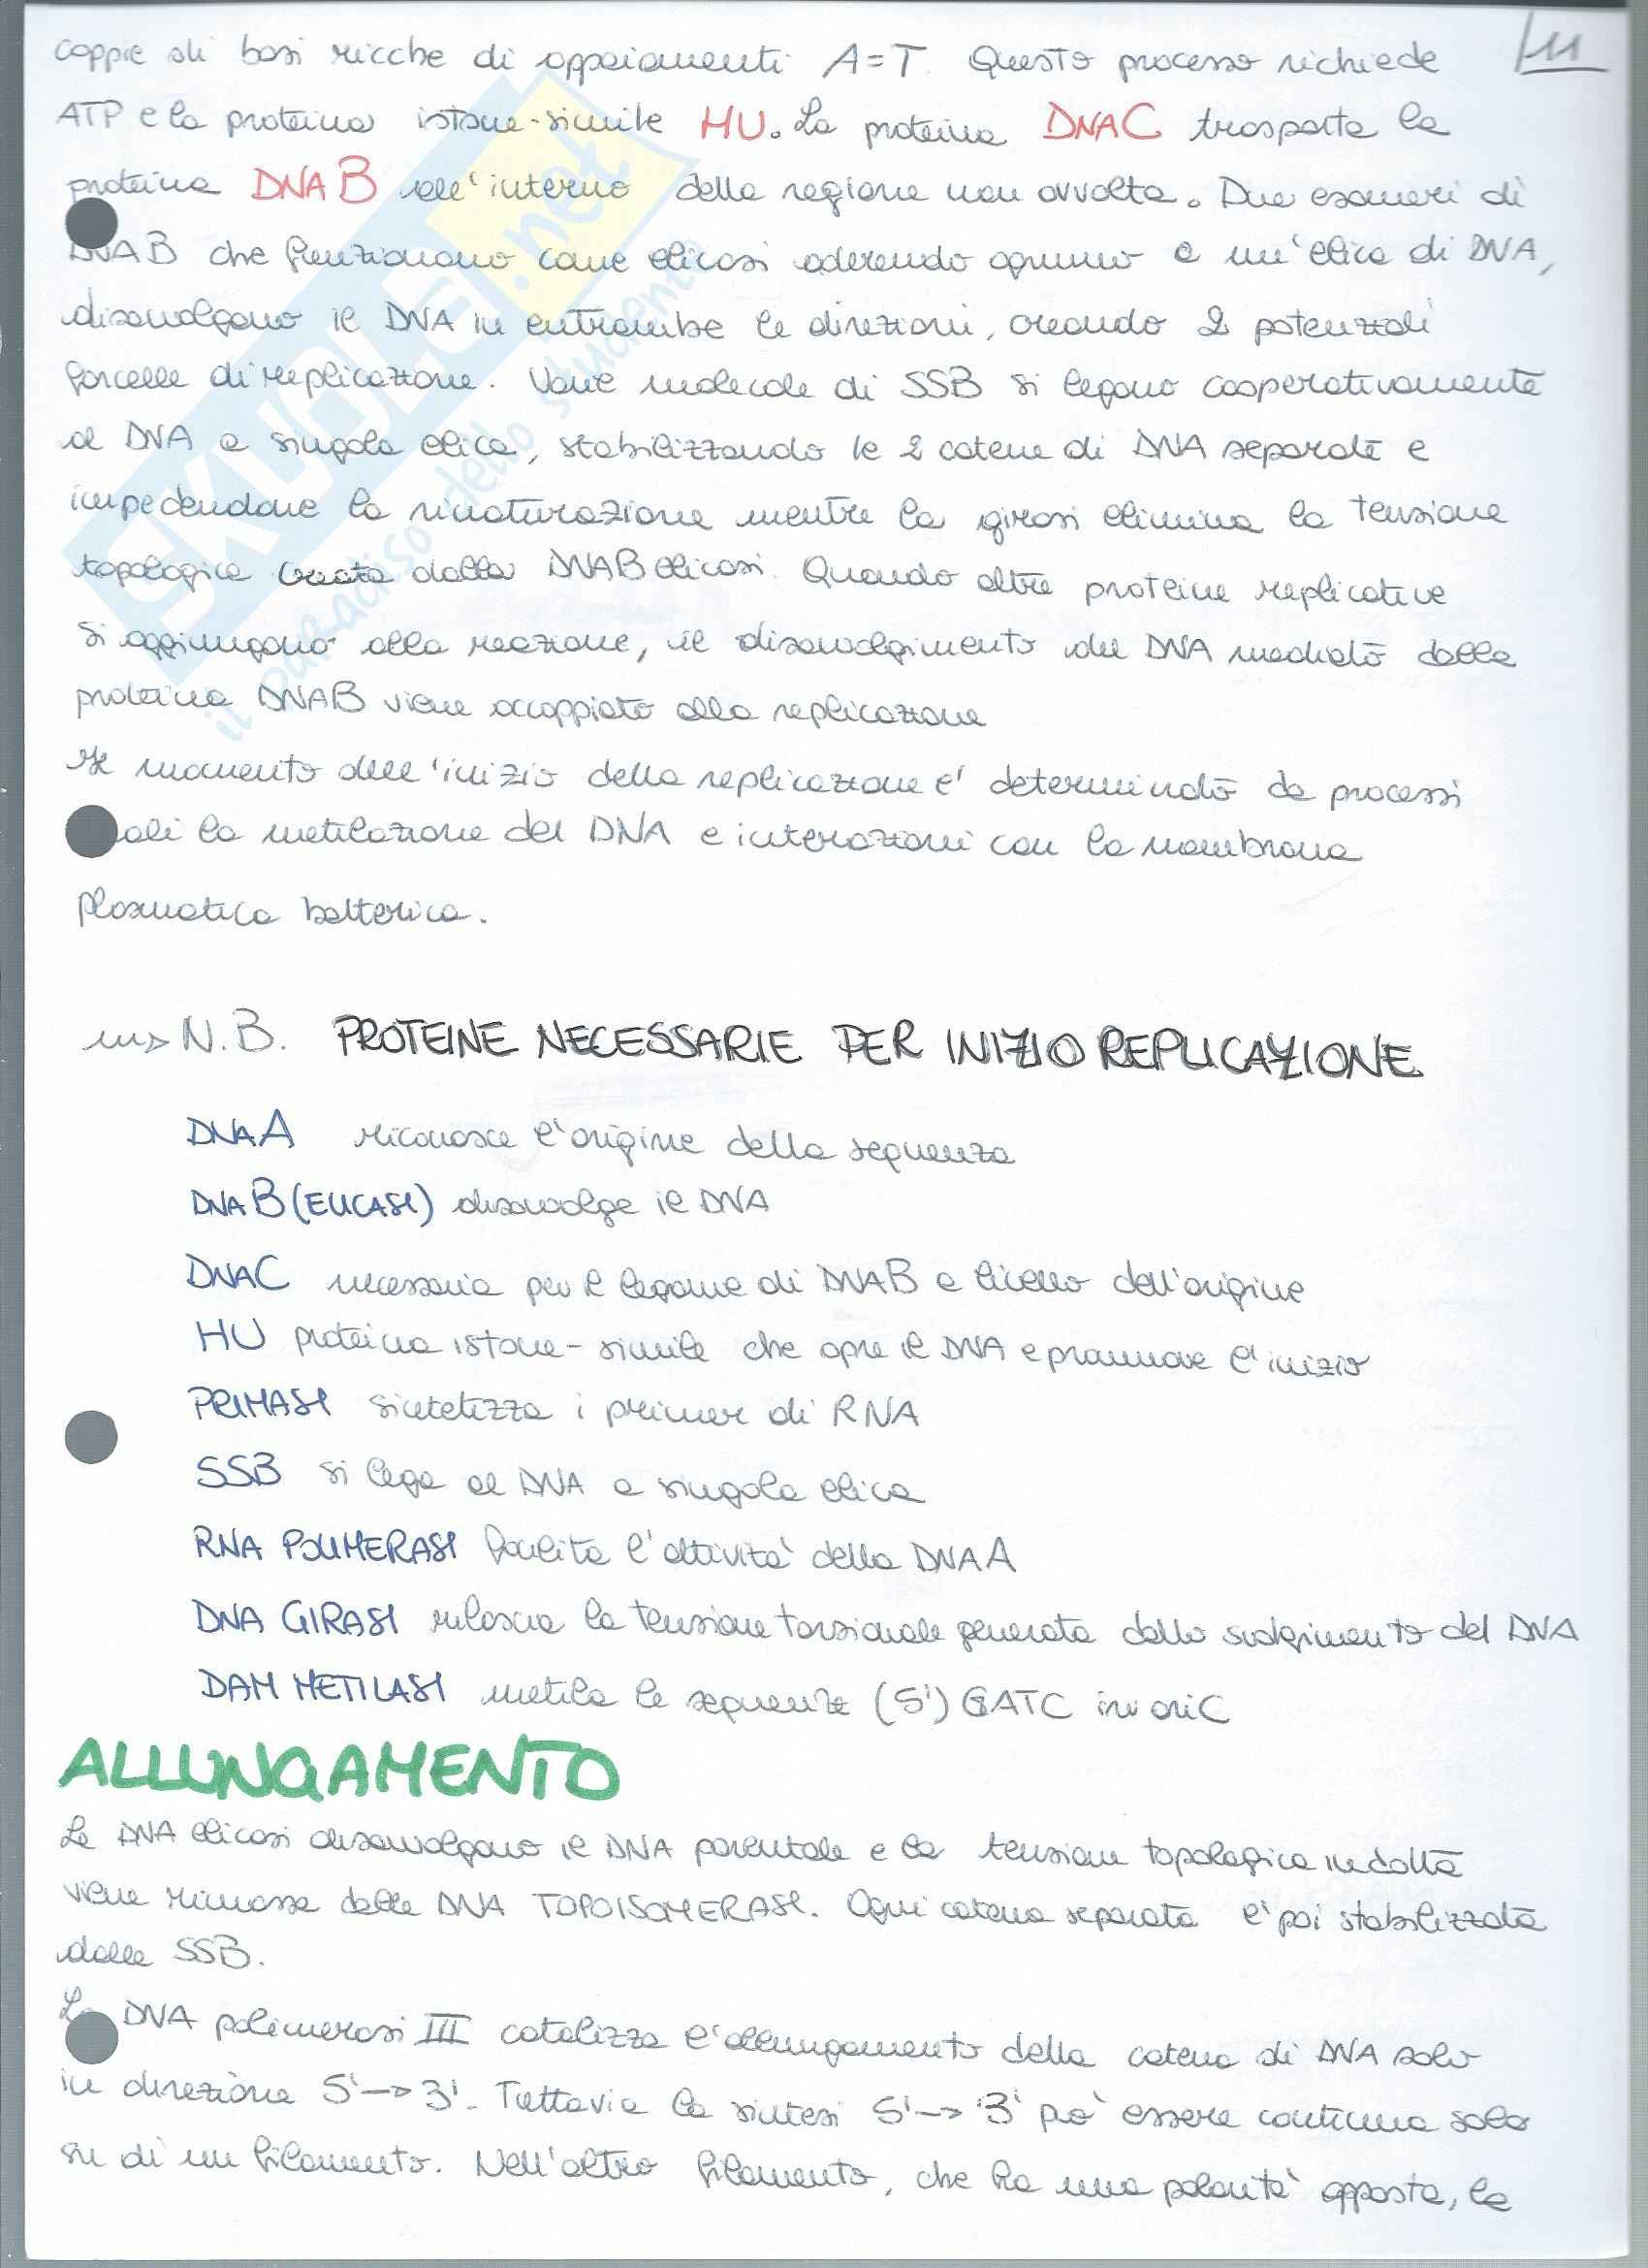 coppie di basi ricche di appaiamenti A=T. Questo processo richiede
ATP e la proteina istone-simile HU. La proteina DNAC trasporta la
proteina DNAB all'interno della regione non avvolta. Due esameri di
DNAB che funzionano come elicasi aderendo ognuno a un'elica di DNA,
disavvolgono il DNA in entrambe le direzioni, creando 2 potenziali
forcelle di replicazione. Varie molecole di SSB si legano cooperativamente
al DNA a singola elica, stabilizzando le 2 catene di DNA separate e
impedendone la rinaturazione mentre la girasi elimina la tensione
topologica creata dalla DNAB elicasi. Quando altre proteine replicative
si aggiungono alla reazione, il disavvolgimento del DNA mediato dalla
proteina DNAB viene accoppiato alla replicazione
Il momento dell'inizio della replicazione e' determinato da processi
quali la metilazione del DNA e interazioni con la membrana
plasmatica batterica.
N.B. PROTEINE NECESSARIE PER INIZIO REPLICAZIONE
DNAA riconosce l'origine della sequenza
DNAB (ELICASI) disavvolge il DNA
DNAC necessaria per il legame di DNAB a livello dell'origine
HU proteina istone-simile che apre il DNA e promuove l'inizio
PRIMASI sintetizza i primer di RNA
SSB si lega al DNA a singola elica
RNA POLIMERASI facilita l'attività della DNAA
DNA GIRASI rilascia la tensione torsionale generata dallo svolgimento del DNA
DAM METILASI metila le sequenze (5') GATC in oriC
ALLUNGAMENTO
Le DNA elicasi disavvolgono il DNA parentale e la tensione topologica indotta
viene rimossa dalle DNA TOPOISOMERASI. Ogni catena separata e' poi stabilizzata
dalle SSB.
La DNA polimerasi III catalizza l'allungamento della catena di DNA solo
in direzione 5'->3'. Tuttavia la sintesi 5'->3' può essere continua solo
su di un filamento. Nell'altro filamento, che ha una polarità opposta, la
SKUOLA.net
il paradiso dello studente